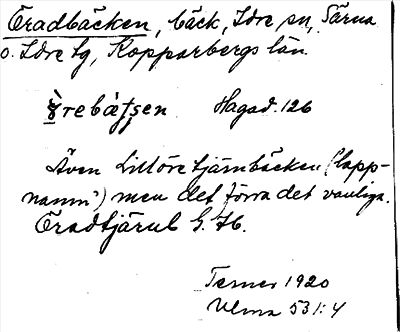 Öradbäcken, bäck, Idre sn, Särna
o. Idre tg, Kopparbergs län.
Hagad. 126
Även Lillöretjärnbäcken ("lapp-
namn") men det förra det vanliga.
Öradtjärnb G. K.
Terner 1920
Ulma 531:4